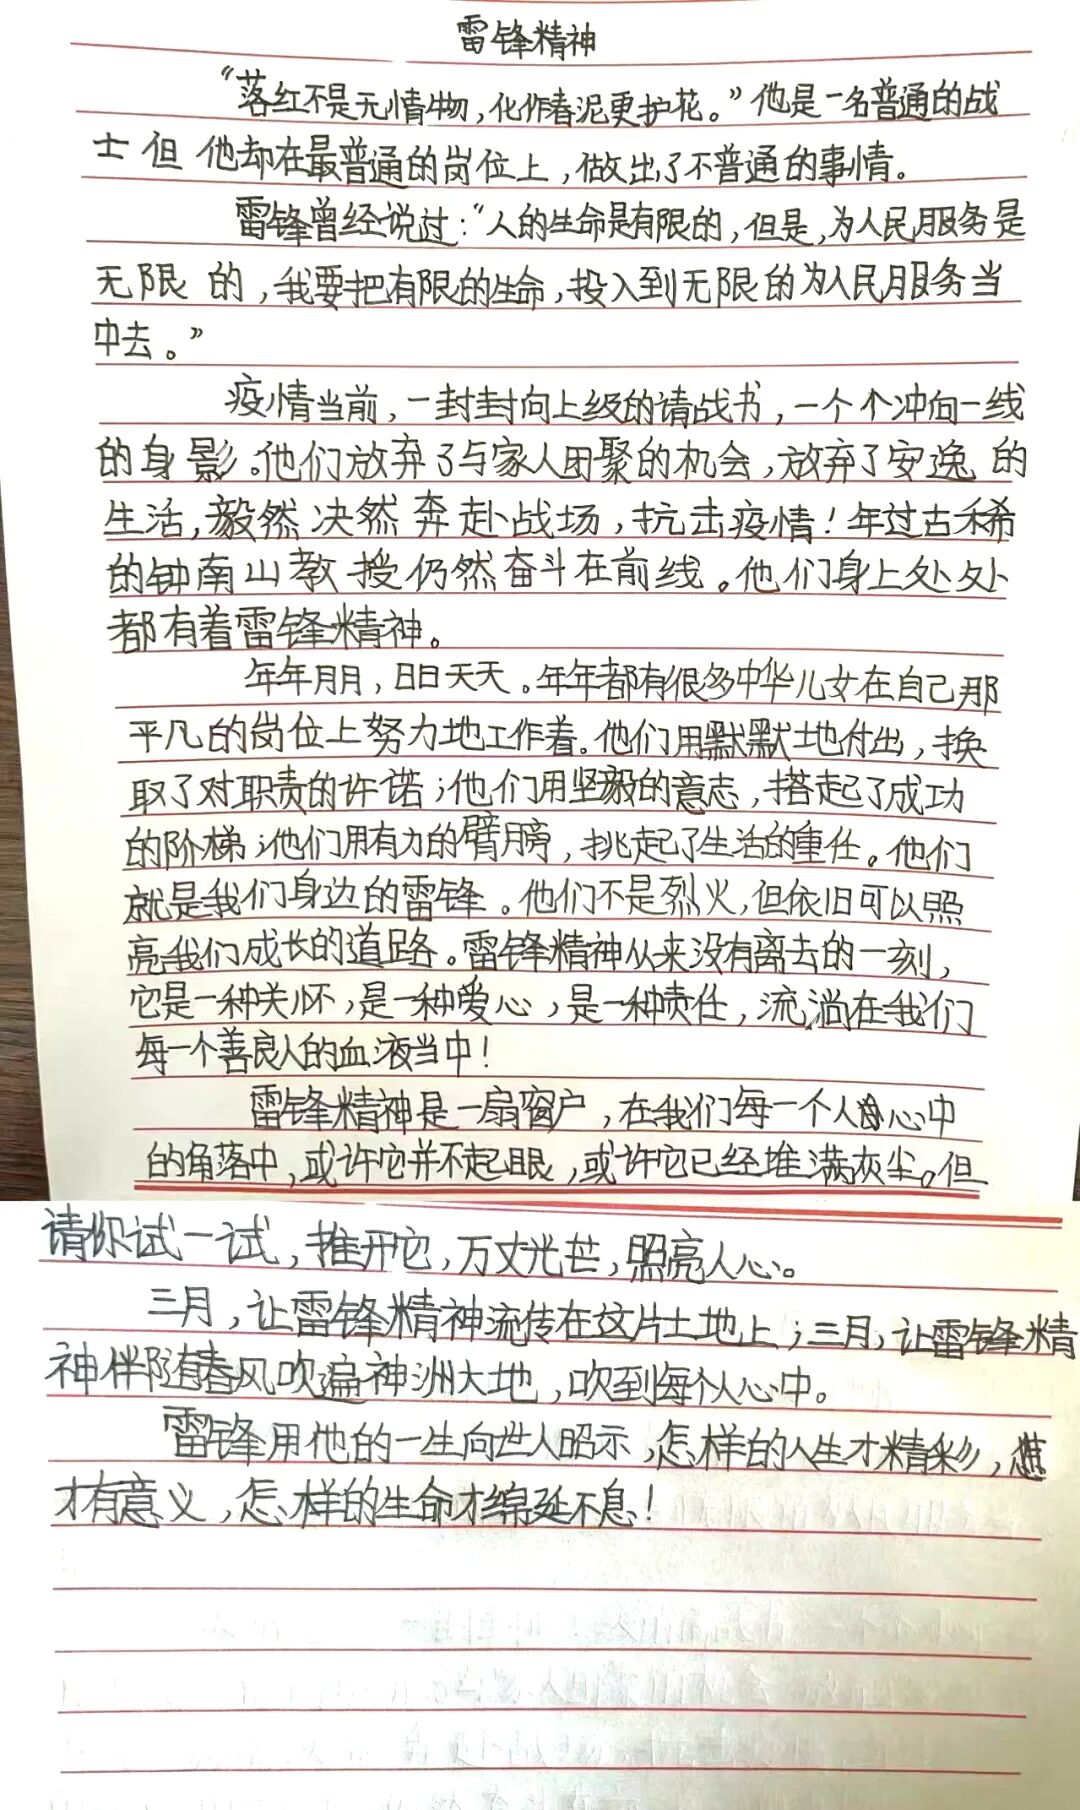 雷锋精神
“落红不是无情物，化作春泥更护花。”他是一名普通的战
士但他却在最普通的岗位上，做出了不普通的事情。
雷锋曾经说过：“人的生命是有限的，但是，为人民服务是
无限的，我要把有限的生命，投入到无限的为人民服务当
中去。”
疫情当前，一封封向上级的请战书，一个个冲向一线
的身影。他们放弃了与家人团聚的机会，放弃了安逸的
生活，毅然决然奔赴战场，抗击疫情！年过古稀
的钟南山教授仍然奋斗在前线。他们身上处处
都有着雷锋精神。
年年月月，日日天天。年年都有很多中华儿女在自己那
平凡的岗位上努力地工作着。他们用默默地付出，换
取了对职责的许诺；他们用坚毅的意志，搭起了成功
的阶梯；他们用有力的臂膀，挑起了生活的重任。他们
就是我们身边的雷锋。他们不是烈火，但依旧可以照
亮我们成长的道路。雷锋精神从来没有离去的一刻，
它是一种关怀，是一种爱心，是一种责任，流淌在我们
每一个善良人的血液当中！
雷锋精神是一扇窗户，在我们每一个人心中
的角落中，或许它并不起眼，或许它已经堆满灰尘。但
请你试一试，推开它，万丈光芒，照亮人心。
三月，让雷锋精神流传在这片土地上；三月，让雷锋精
神伴随春风吹遍神洲大地，吹到每个人心中。
雷锋用他的一生向世人昭示，怎样的人生才精彩，
才有意义，怎样的生命才绵延不息！